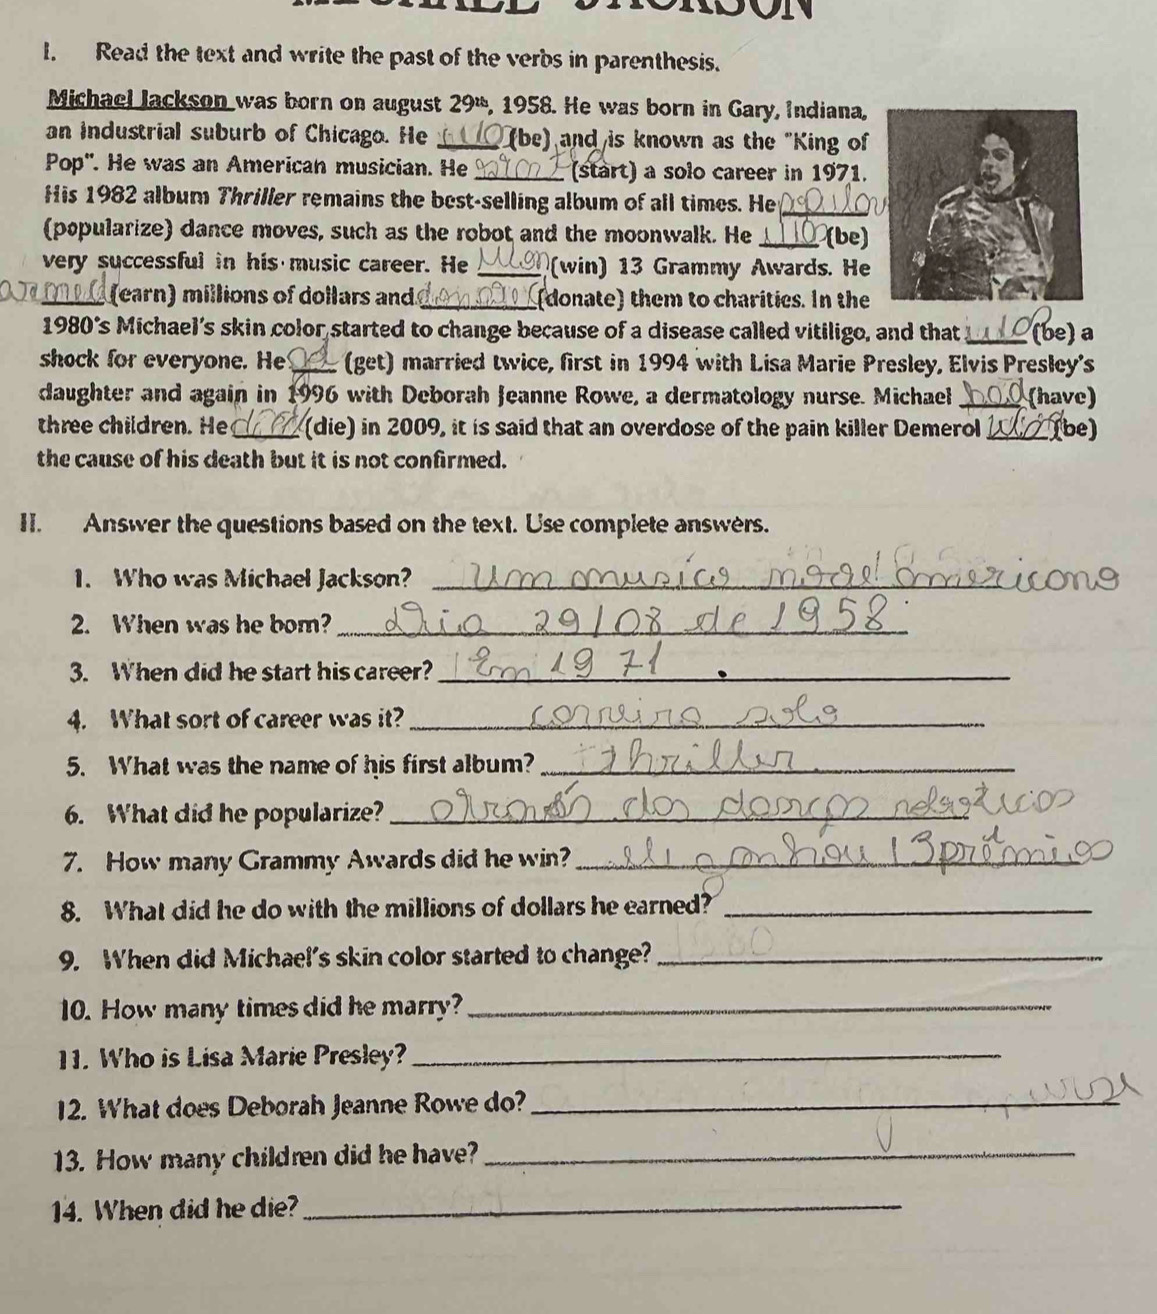 MICHAEL JACKSON
I. Read the text and write the past of the verbs in parenthesis.
Michael Jackson was born on august 29th, 1958. He was born in Gary, Indiana,
an industrial suburb of Chicago. He (be) and is known as the "King of
Pop". He was an American musician. He (start) a solo career in 1971.
His 1982 album Thriller remains the best-selling album of all times. He
(popularize) dance moves, such as the robot and the moonwalk. He (be)
very successful in his music career. He won (win) 13 Grammy Awards. He
(earn) millions of dollars and (donate) them to charities. In the
1980's Michael's skin color started to change because of a disease called vitiligo, and that (be) a
shock for everyone. He got (get) married twice, first in 1994 with Lisa Marie Presley, Elvis Presley's
daughter and again in 1996 with Deborah Jeanne Rowe, a dermatology nurse. Michael had (have)
three children. He died (die) in 2009, it is said that an overdose of the pain killer Demerol (be)
the cause of his death but it is not confirmed.
II. Answer the questions based on the text. Use complete answers.
1. Who was Michael Jackson? Um musico americano
2. When was he born? dia 29/08 de 1958.
3. When did he start his career? Em 1971.
4. What sort of career was it? carreira solo
5. What was the name of his first album? thriller
6. What did he popularize? dos danças
7. How many Grammy Awards did he win? ele ganhou 13 prêmios
8. What did he do with the millions of dollars he earned?
9. When did Michael's skin color started to change?
10. How many times did he marry?
11. Who is Lisa Marie Presley?
12. What does Deborah Jeanne Rowe do?
13. How many children did he have?
14. When did he die?